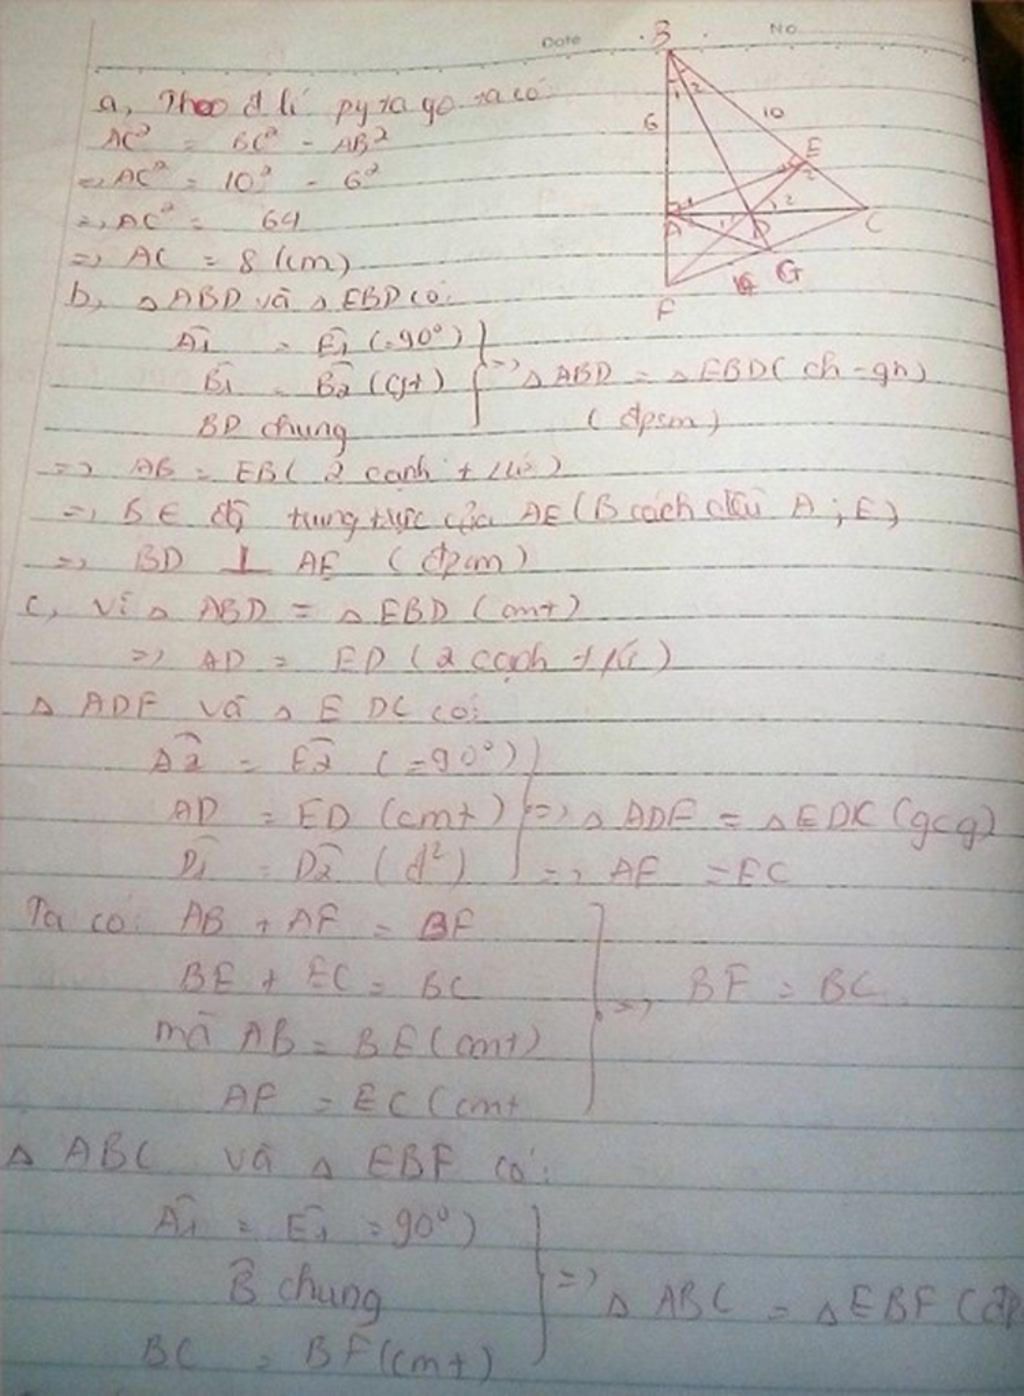 Date No
B
1 2
6 10
E
2
A 1 D 2 C
G
F
a, Theo đ lí pytago ta có
AC² = BC² - AB²
=> AC² = 10² - 6²
=> AC² = 64
=> AC = 8 (cm)
b, △ ABD và △ EBD có:
Â1 = Ê1 (=90°)
B̂1 = B̂2 (gt) => △ ABD = △ EBD (ch - gn)
BD chung (đpcm)
=> AB = EB ( 2 cạnh t/ứ )
=> B ∈ đg trung trực của AE (B cách đều A ; E)
=> BD ⊥ AE (đpcm)
c, Vì △ ABD = △ EBD (cmt)
=> AD = ED ( 2 cạnh t/ứ )
△ ADF và △ EDC có:
Â2 = Ê2 (=90°)
AD = ED (cmt) => △ ADF = △ EDC (gcg)
D̂1 = D̂2 (đ²) => AF = EC
Ta có: AB + AF = BF
BE + EC = BC => BF = BC
mà AB = BE (cmt)
AF = EC (cmt
△ ABC và △ EBF có:
Â1 = Ê1 = 90°)
B̂ chung => △ ABC = △ EBF (đp
BC = BF (cmt)